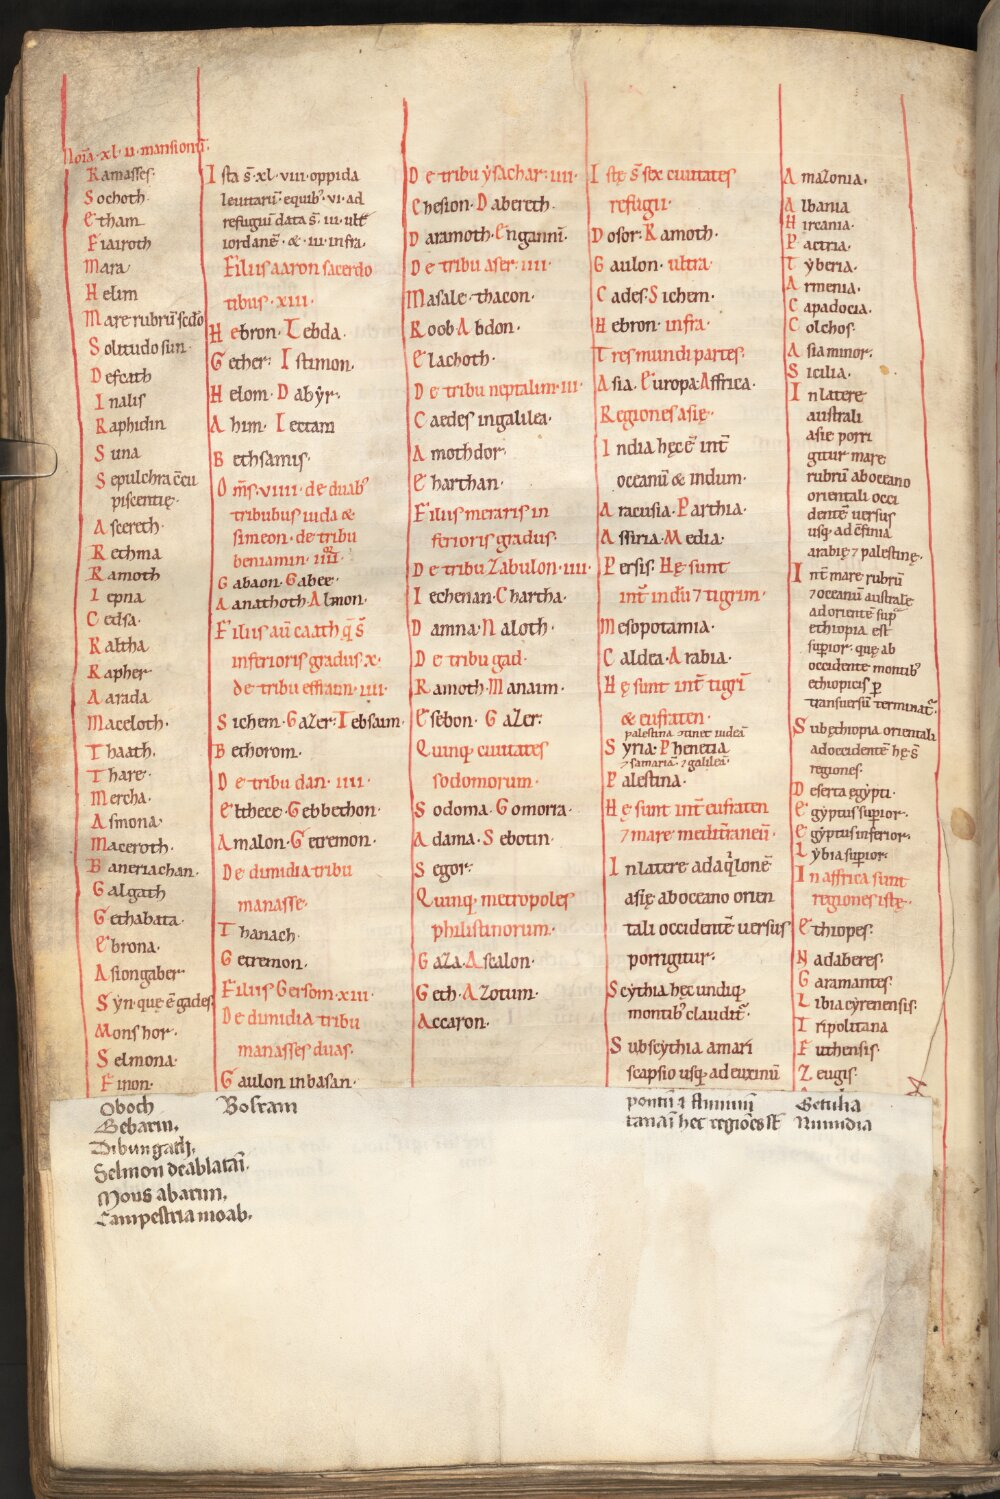 Noīa·xl·ii·mansionū·
Ramasses·
Sochoth·
Etham
Fiairoth
Mara
Helim
Mare rubrū sc̄do
Solitudo sin·
Defcath
Inalis
Raphidin
Suna
Sepulchra c̄cu
piscentię·
Ascereth·
Rethma
Ramoth
Iepna
Cedsa·
Raltha
Rapher·
Aarada
Maceloth·
Thaath·
Thare·
Mercha·
Asmona·
Maceroth·
Baneriachan·
Galgath
Gethabata·
Ebrona·
Asiongaber
Syn·quę ē gades
Mons hor·
Selmona·
Finon·
Oboch
Gebarin,
Dibungadj,
Selmon deablataī·
Mons abarim,
Campestria moab,
Ista s̄·xl·viii·oppida
leuitarū·equib;·vi·ad
refugiū data s̄·iii·ult̄
iordanē·&·iii·infra·
Filiis aaron sacerdo
tibus·xiii·
Hebron·Lebda·
Gether·Istimon·
Helom·Dabyr·
Ahim·Iectam
Bethsamis·
Om̄s·viiii·de duab;
tribubus iuda &
simeon·de tribu
beniamin·iiii·
Gabaon·Gabee·
Aanathoth·Almon·
Filiis aū caath q̄ s̄
inferioris gradus x·
de tribu effraim·iiii·
Sichem·Gazer·Iebsaim·
Bethorom·
De tribu dan·iiii·
Elthece·Gebbethon·
Amalon·Getremon·
De dimidia tribu
manasse·
Thanach·
Getremon·
Filiis Gersom·xiii·
De dimidia tribu
manasses duas·
Gaulon inbasan·
Bosram
De tribu ysachar·iiii·
Chesion·Dabereth·
Daramoth·Engannī·
De tribu aser·iiii·
Masale·thacon·
Roob·Abdon·
Elachoth·
De tribu neptalim·iii·
Caedes ingalilea·
Amothdor·
Eharthan·
Filiis meraris in
ferioris gradus·
De tribu Zabulon·iiii·
Iechenan·Chartha·
Damna·Naloth·
De tribu gad·
Ramoth·Manaim·
Esebon·Gazer·
Quinq; ciuitates
sodomorum·
Sodoma·Gomorra·
Adama·Sebotin·
Segor·
Quinq; metropoles
philistinorum·
Gaza·Ascalon·
Geth·Azotum·
Accaron·
Istę s̄ sex ciuitates
refugii·
Dosor·Ramoth·
Gaulon·ultra·
Cades·Sichem·
Hebron·infra·
Tres mundi partes·
Asia·Europa·Affrica·
Regiones asię·
India hęc ē int̄
oceanū & indum·
Aracusia·Parthia·
Assiria·Media·
Persis·Hę sunt
int̄ indū ⁊ tigrim·
Mesopotamia·
Caldea·Arabia·
Hę sunt int̄ tigrī
& eufraten·
palestina ⁊ int̄ iudeā
Syria·Phenetia
⁊ samariā·⁊ galileā·
Palestina·
Hę sunt int̄ eufraten
⁊ mare mediťraneū·
In latere adaq̇lonē
asię ab oceano orien
tali occidentē uersus
porrigitur·
Scythia hęc undiq;
montib; claudit᷑·
Subscythia amari
scapsio usq; ad euxinū
pontū ⁊ flumini
tanaī hec regiōes st̄
Amazonia·
Albania
Hircania·
Pactria·
Tyberia·
Armenia·
Capadocia·
Colchos·
Asia minor·
Sicilia·
In latere
australi
asie porri
gitur mare
rubrū ab oceano
orientali occi
dentē uersus
usq; ad c̄finia
arabię ⁊ palestinę·
Int̄ mare rubrū
⁊ oceanū australē
ad orientē sup̄
ethiopia est
sup̄ior·quę ab
occidente montib;
ethiopicis ꝑ
transuersū terminat᷑·
Sub ęthiopia orientali
ad occidentē hę s̄
regiones·
Deserta egypti·
Egyptus sup̄ior·
Egyptus inferior·
Lybia sup̄ior·
In affrica sunt
regiones istę·
Ethiopes·
Nadaberes·
Garamantes·
Libia cyrenensis·
Tripolitana
Futhensis·
Zeugis·
Getulia
Numidia